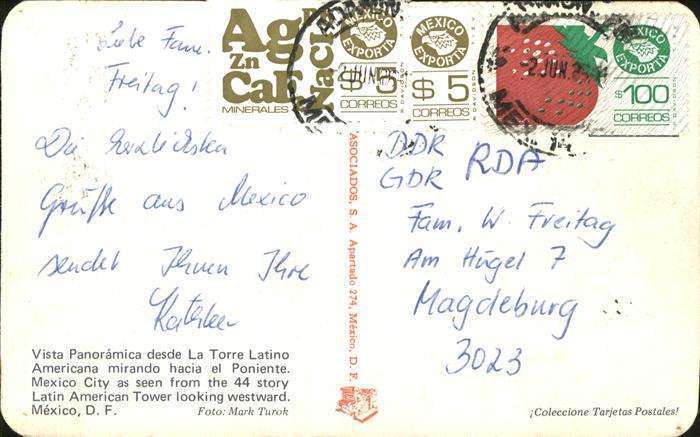 Liebe Fam.
Freitag!
Die herzlichsten
Grüße aus Mexico
sendet Ihnen Ihre
Vista Panorámica desde La Torre Latino
Americana mirando hacia el Poniente.
Mexico City as seen from the 44 story
Latin American Tower looking westward.
México, D. F.
Foto: Mark Turok
Ag
Zn
CaF
MINERALES
MEXICO
EXPORTA
$5
CORREOS
MEXICO
EXPORTA
$5
CORREOS
MEXICO
EXPORTA
$100
CORREOS
2 JUN.
2 JUN.
ASOCIADOS, S. A. Apartado 274, México, D. F.
DDR
GDR RDA
Fam. W. Freitag
Am Hügel 7
Magdeburg
3023
¡Coleccione Tarjetas Postales!